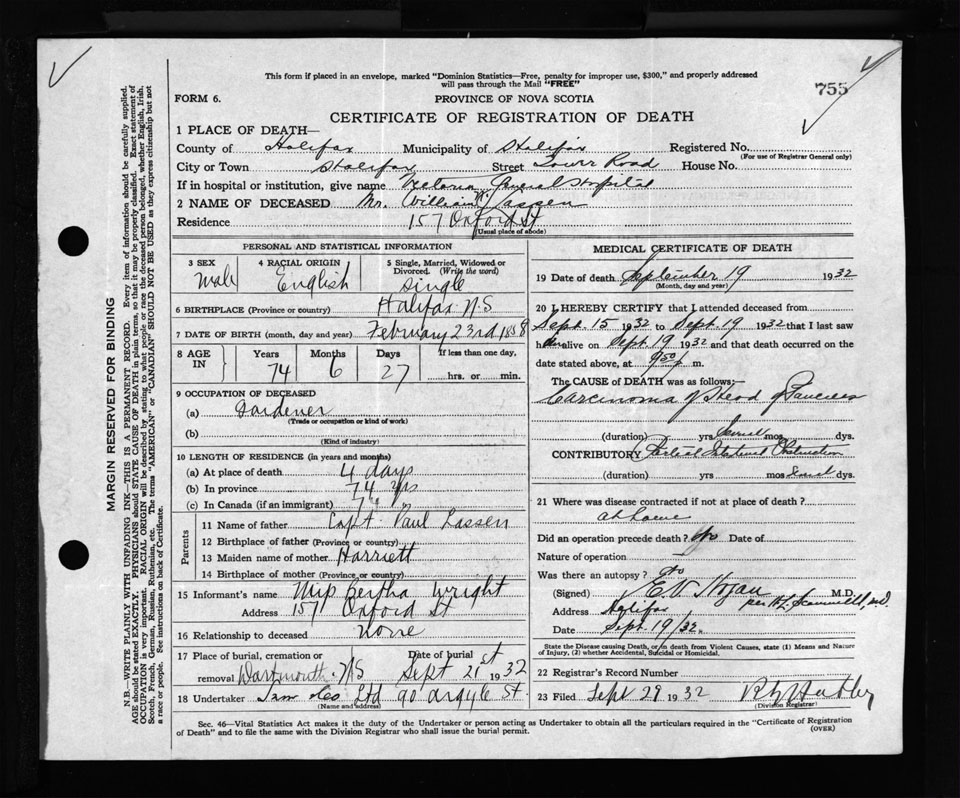 This form if placed in an envelope, marked "Dominion Statistics—Free, penalty for improper use, $300," and properly addressed
will pass through the Mail "FREE"
755
FORM 6.
PROVINCE OF NOVA SCOTIA
CERTIFICATE OF REGISTRATION OF DEATH
MARGIN RESERVED FOR BINDING
N.B.—WRITE PLAINLY WITH UNFADING INK—THIS IS A PERMANENT RECORD. Every item of information should be carefully supplied.
AGE should be stated EXACTLY. PHYSICIANS should STATE CAUSE OF DEATH in plain terms, so that it may be properly classified. Exact statement of
OCCUPATION is very important. RACIAL ORIGIN will be described by stating to what people or race the deceased person belonged, whether English, Irish,
Scotch, French, German, Russian, Ruthenian, etc. The terms "AMERICAN" or "CANADIAN" SHOULD NOT BE USED as they express citizenship but not
a race or people. See instructions on back of Certificate.
1 PLACE OF DEATH—
County of Halifax Municipality of Halifax Registered No.
(For use of Registrar General only)
City or Town Halifax Street Tower Road House No.
If in hospital or institution, give name Victoria General Hospital
2 NAME OF DECEASED Mr. William Lassen
Residence 157 Oxford St
(Usual place of abode)
PERSONAL AND STATISTICAL INFORMATION
3 SEX Male
4 RACIAL ORIGIN English
5 Single, Married, Widowed or Divorced. (Write the word) Single
6 BIRTHPLACE (Province or country) Halifax N.S
7 DATE OF BIRTH (month, day and year) February 23rd 1858
8 AGE IN Years 74 Months 6 Days 27 If less than one day, hrs. or min.
9 OCCUPATION OF DECEASED
(a) Gardener
(Trade or occupation or kind of work)
(b)
(Kind of industry)
10 LENGTH OF RESIDENCE (in years and months)
(a) At place of death 4 days
(b) In province 74 yrs
(c) In Canada (if an immigrant)
Parents
11 Name of father Capt. Paul Lassen
12 Birthplace of father (Province or country)
13 Maiden name of mother Harriett
14 Birthplace of mother (Province or country)
15 Informant's name Miss Bertha Wright
Address 157 Oxford St
16 Relationship to deceased None
17 Place of burial, cremation or removal Dartmouth N.S Date of burial Sept 21st 1932
18 Undertaker Snow & Co Ltd 90 Argyle St.
(Name and address)
MEDICAL CERTIFICATE OF DEATH
19 Date of death September 19 1932
(Month, day and year)
20 I HEREBY CERTIFY that I attended deceased from
Sept. 15 1932 to Sept. 19 1932 that I last saw
him alive on Sept. 19 1932 and that death occurred on the
date stated above, at 9.50 p m.
The CAUSE of DEATH was as follows:—
Carcinoma of Head of Pancreas
(duration) yrs Several mos dys.
CONTRIBUTORY Partial Intestinal Obstruction
(duration) yrs mos Several dys.
21 Where was disease contracted if not at place of death?
at home
Did an operation precede death? No Date of
Nature of operation
Was there an autopsy? No
(Signed) E.V. Hogan M.D.
per H.L. Scammell, M.D.
Address Halifax
Date Sept. 19/32.
State the Disease causing Death, or in death from Violent Causes, state (1) Means and Nature
of Injury, (2) whether Accidental, Suicidal or Homicidal.
22 Registrar's Record Number
23 Filed Sept 29 1932
(Division Registrar)
Sec. 46—Vital Statistics Act makes it the duty of the Undertaker or person acting as Undertaker to obtain all the particulars required in the "Certificate of Registration
of Death" and to file the same with the Division Registrar who shall issue the burial permit.
(OVER)